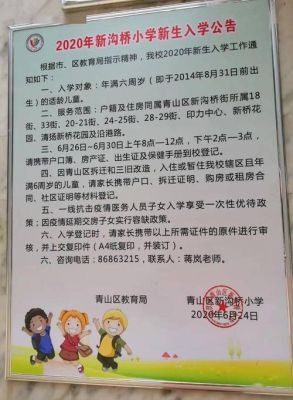 2020年新沟桥小学新生入学公告
根据市、区教育局指示精神,我校2020年新生入学工作通
知如下:
一、入学对象:年满六周岁(即于2014年8月31日前出
生)的适龄儿童。
二、服务范围:户籍及住房同属青山区新沟桥街所属18
街、33街、20-21街、24-25街、28-29街、印力中心、新桥花
园、清扬新桥花园及沿港路。
三、6月26日~6月30日上午8点—12点,下午2点—3点,
请携带户口簿、房产证、出生证及保健手册到校登记。
四、因青山区拆迁和三旧改造,入住或暂住我校辖区且年
满6周岁的儿童,请家长携带户口、拆迁证明、购房或租房合
同、社区证明等材料登记。
五、一线抗击疫情医务人员子女入学享受一次性优待政
策;因疫情延期交房子女实行容缺政策。
六、入学登记时,请家长携带以上所需证件的原件进行审
核,并上交复印件(A4纸复印,并装订)。
六、咨询电话:86863215,联系人:蒋岚老师。
青山区教育局
青山区新沟桥小学
2020年6月24日